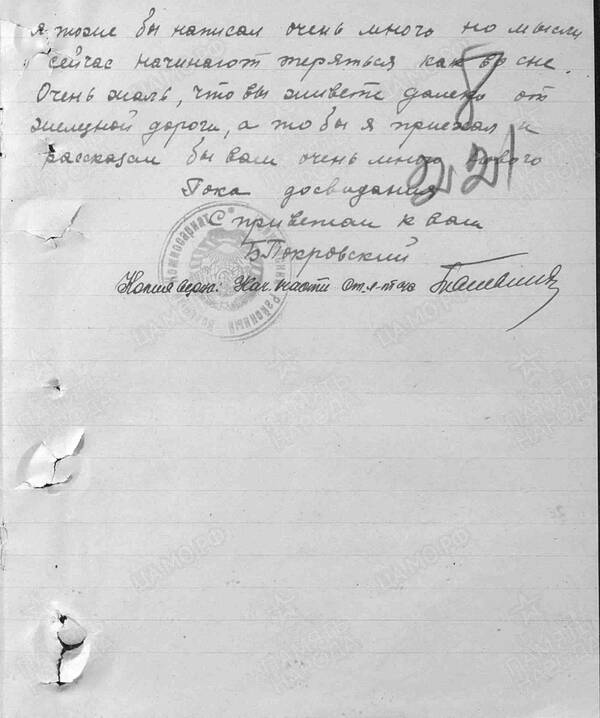 я тоже бы написал очень много но мысли
сейчас начинают теряться как во сне.
Очень жаль, что вы живете далеко от
желез­ной дороги, а то бы я приехал и
рассказал бы вам очень много нового
8
221
Пока досвидания
С приветом к вам
Б Покровский
Копия верна: Нач. части ст. л-т а/с
ЦАМО.РФ
ПАМЯТЬ НАРОДА